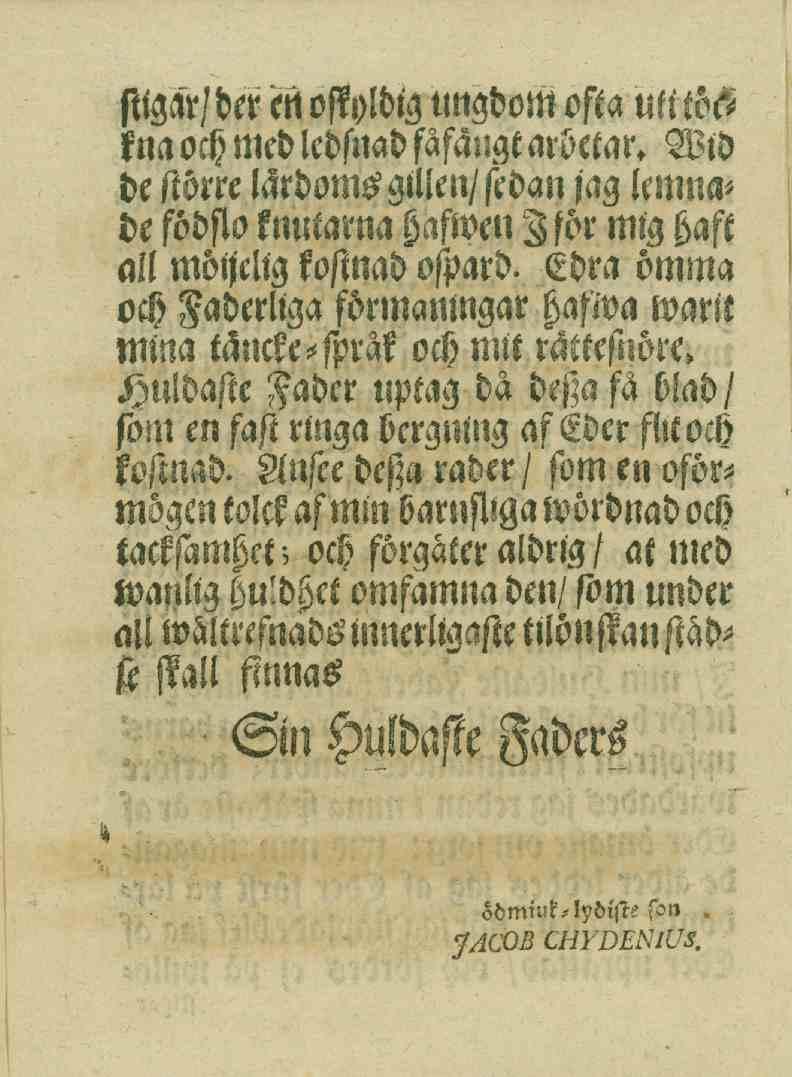 stigar/ der en oskyldig ungdom ofta uti töc-
kna och med ledsnad fåfängt arbetar. Wid
de större lärdoms gillen/ sedan jag lemna-
de födslo knutarna hafwen I för mig haft
all möijelig kostnad ospard. Edra ömma
och Faderliga förmaningar hafwa warit
mina täncke-språk och mit rättesnöre.
Huldaste Fader uptag då deßa få blad/
som en fast ringa bergning af Eder flit och
kostnad. Ansee deßa rader/ som en oför-
mögen tolck af min barnsliga wördnad och
tacksamhet; och förgäter aldrig/ at med
wanlig huldhet omfamna den/ som under
all wältrefnads innerligaste tilönskan städ-
se skall finnas
Sin Huldaste Faders
ödmiuk-lydiste son
JACOB CHYDENIUS.